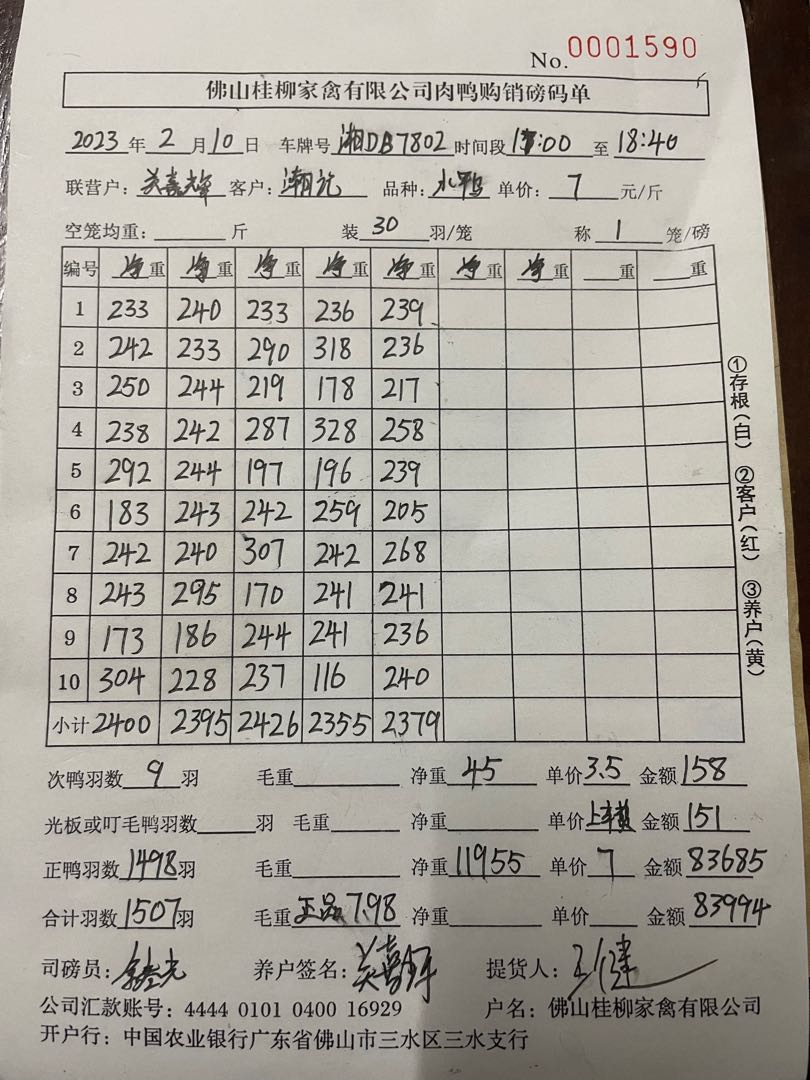 No. 0001590
佛山桂柳家禽有限公司肉鸭购销磅码单
2023年2月10日 车牌号湘DB7802时间段17:00至18:40
联营户: 客户: 品种:水鸭 单价:7元/斤
空笼均重:斤 装30羽/笼 称1笼/磅
编号 净重 净重 净重 净重 净重 净重 净重 重 重
1 233 240 233 236 239
2 242 233 290 318 236
3 250 244 219 178 217
4 238 242 287 328 258
5 292 244 197 196 239
6 183 243 242 259 205
7 242 240 307 242 268
8 243 295 170 241 241
9 173 186 244 241 236
10 304 228 237 116 240
小计 2400 2395 2426 2355 2379
①存根(白) ②客户(红) ③养户(黄)
次鸭羽数9羽 毛重 净重45 单价3.5 金额158
光板或叮毛鸭羽数羽 毛重 净重 单价 金额151
正鸭羽数1498羽 毛重 净重11955 单价7 金额83685
合计羽数1507羽 毛重正品7.98 净重 单价 金额83994
司磅员: 养户签名: 提货人:
公司汇款账号: 4444 0101 0400 16929 户名: 佛山桂柳家禽有限公司
开户行: 中国农业银行广东省佛山市三水区三水支行